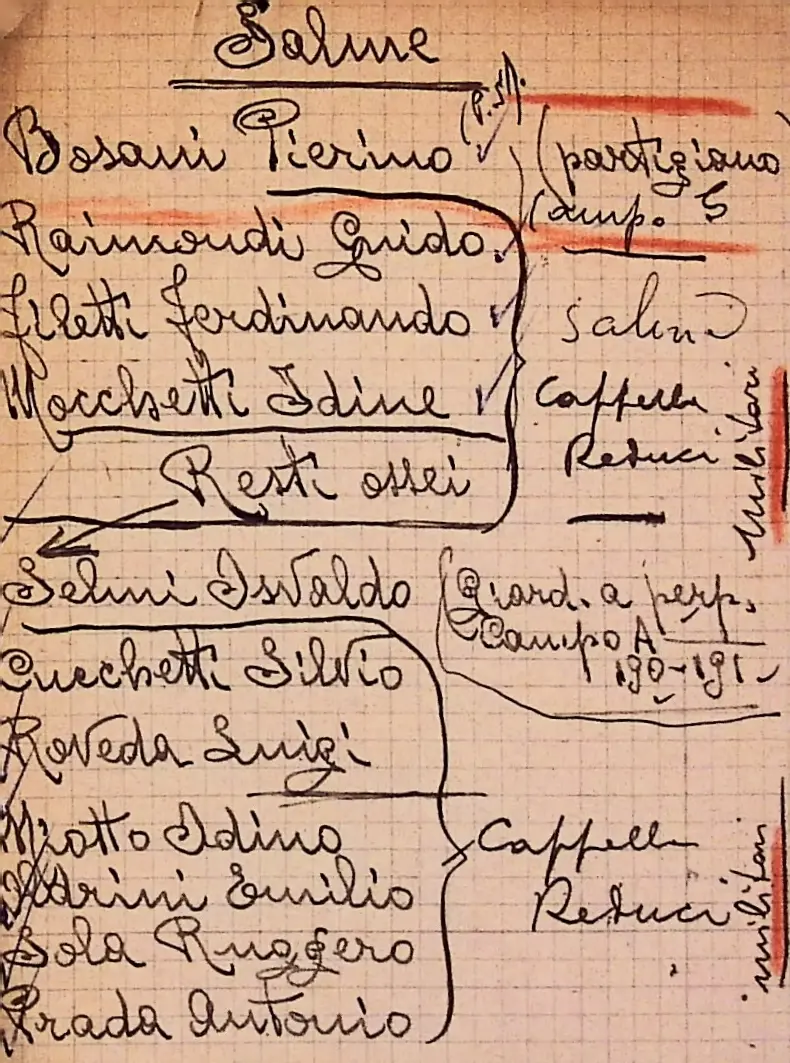 Salme
Bosani Pierino (p. 51). (partigiano)
Camp. 5
Raimondi Guido
Filetti Ferdinando salme
Mocchetti Idine Cappella
Reduci militari
Resti ossei
Selmi Osvaldo (Giard. a perp.
Campo A
190-191-
Cucchetti Silvio
Roveda Luigi
Miotto Idino Cappella
Marini Emilio Reduci militari
Sola Ruggero
Prada Antonio